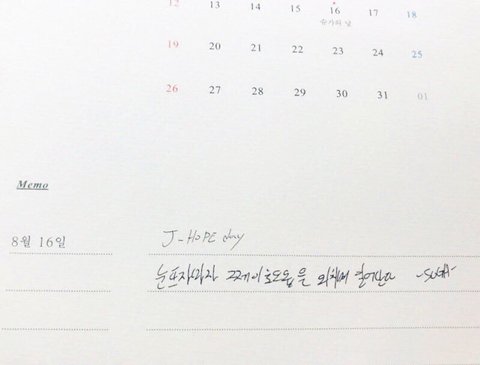 12 13 14 15 16 17 18
19 20 21 22 23 24 25
26 27 28 29 30 31 01
Memo
8월 16일 J-HOPE day
눈뜨자마자 제이호프을 외치며 일어난다 -SUGA-